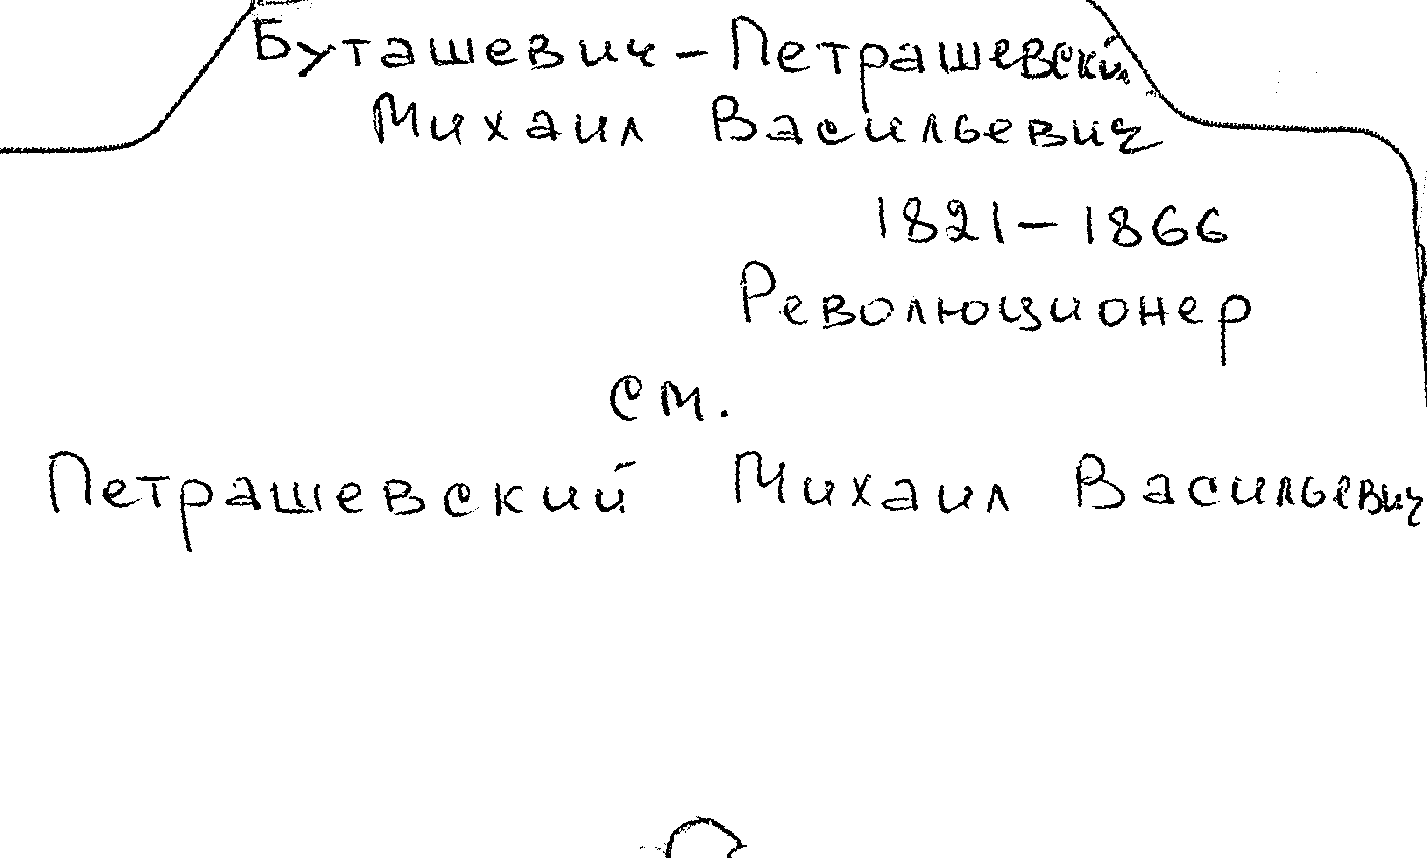 Буташевич-Петрашевский
Михаил Васильевич
1821-1866
Революционер
см.
Петрашевский Михаил Васильевич